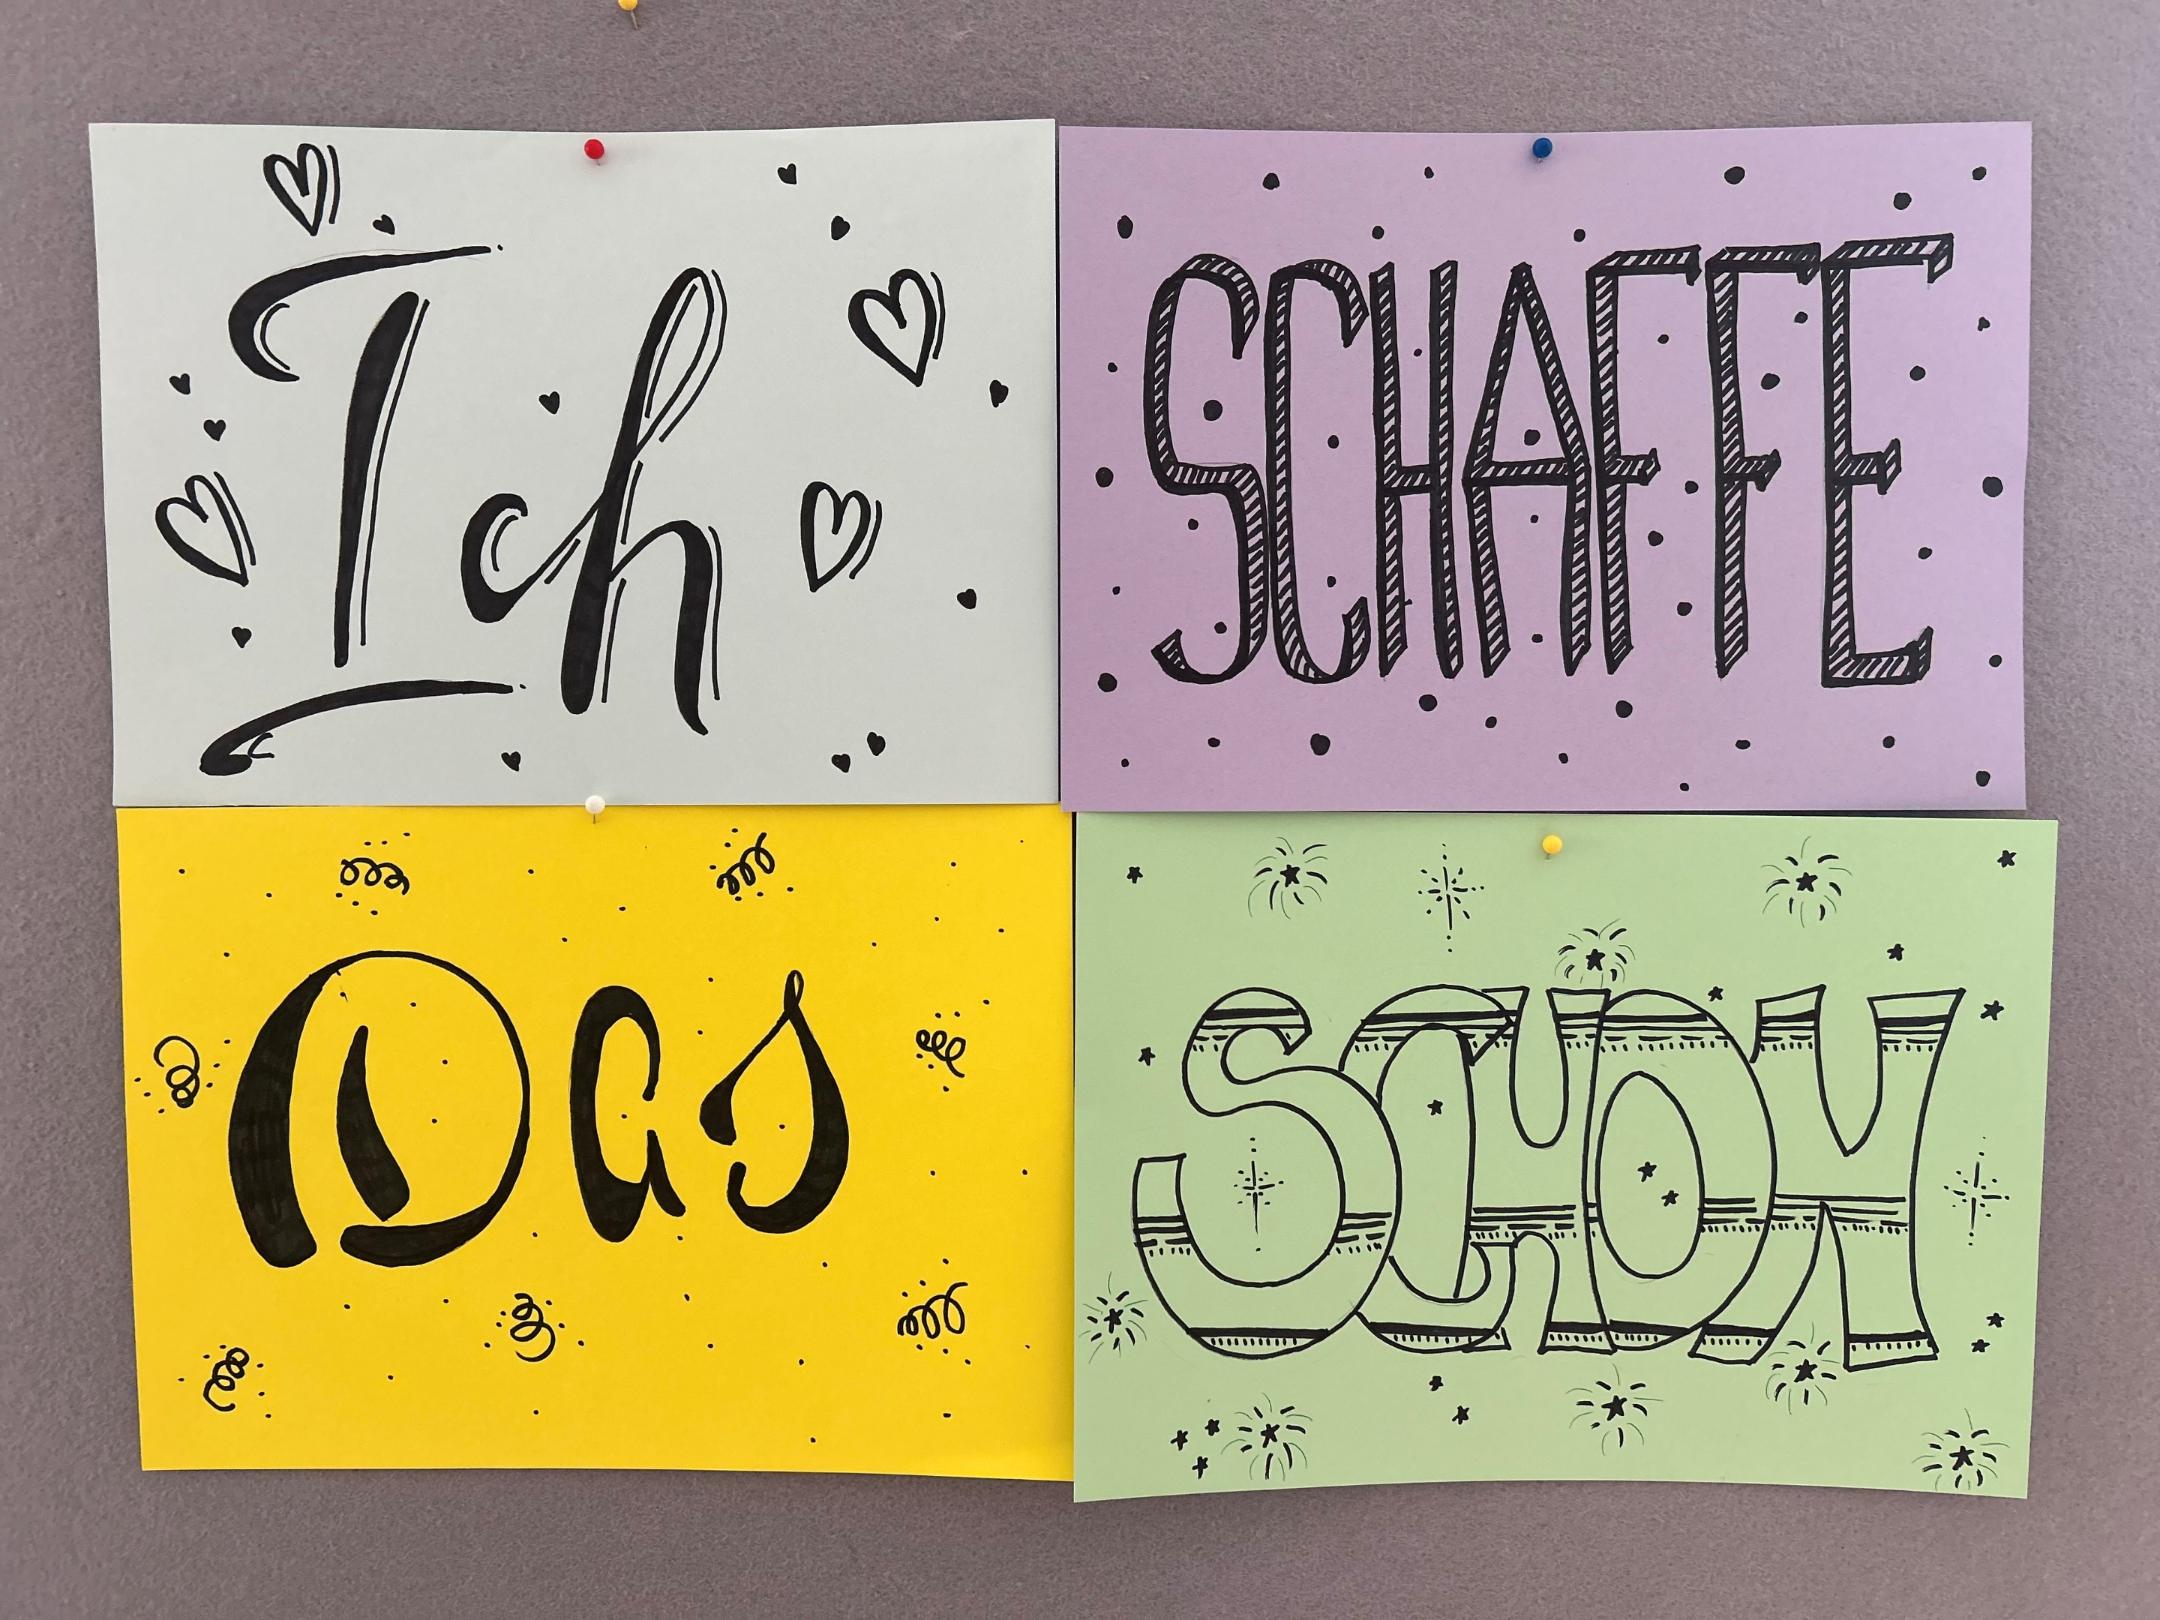 Ich
SCHAFFE
Das
SCHON